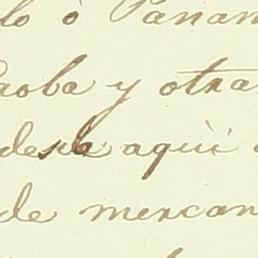 lo ò Panam
caoba y otra
desde aquì
de mercan